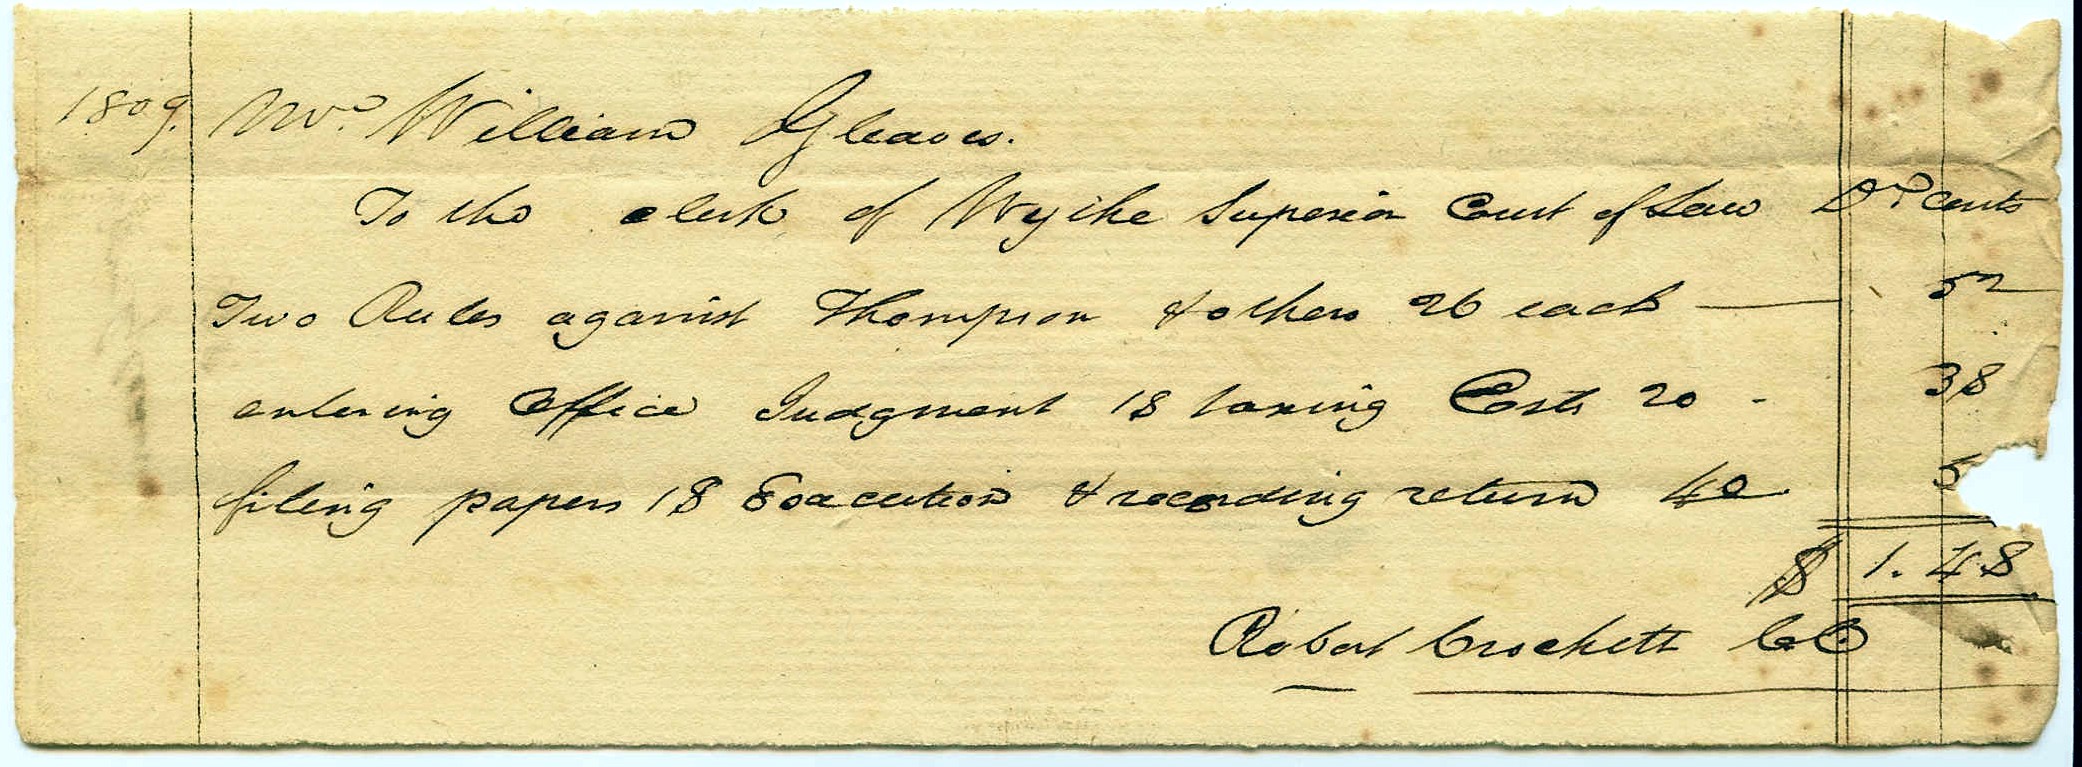 1809. Mr. William Gleaves.
To the clerk of Wythe Superior Court of Law Dr. cents
Two Rules against Thompson & others 26 each — 52
entering office Judgment 18 taxing Costs 20 - 38
filing papers 18 Execution & recording return 40 5
$ 1.48
Robert Crockett